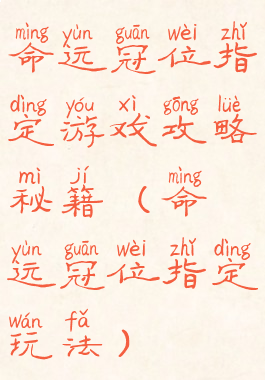 mìng yùn guān wèi zhǐ
命运冠位指
dìng yóu xì gōng lüè
定游戏攻略
mì jí mìng
秘籍（命
yùn guān wèi zhǐ dìng
运冠位指定
wán fǎ
玩法）